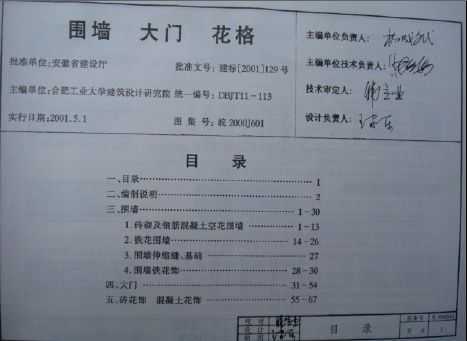 围墙 大门 花格
批准单位:安徽省建设厅 批准文号:建标[2001]129号
主编单位:合肥工业大学建筑设计研究院 统一编号:DBJT11-113
实行日期:2001.5.1 图集号:皖2000J601
主编单位负责人:
主编单位技术负责人:
技术审定人:
设计负责人:
目录
一、目录 1
二、编制说明 2
三、围墙 1-30
1.砖砌及钢筋混凝土空花围墙 1-13
2.铁花围墙 14-26
3.围墙伸缩缝、基础 27
4.围墙铁花饰 28-30
四、大门 31-54
五、砖花饰 混凝土花饰 55-67
目录